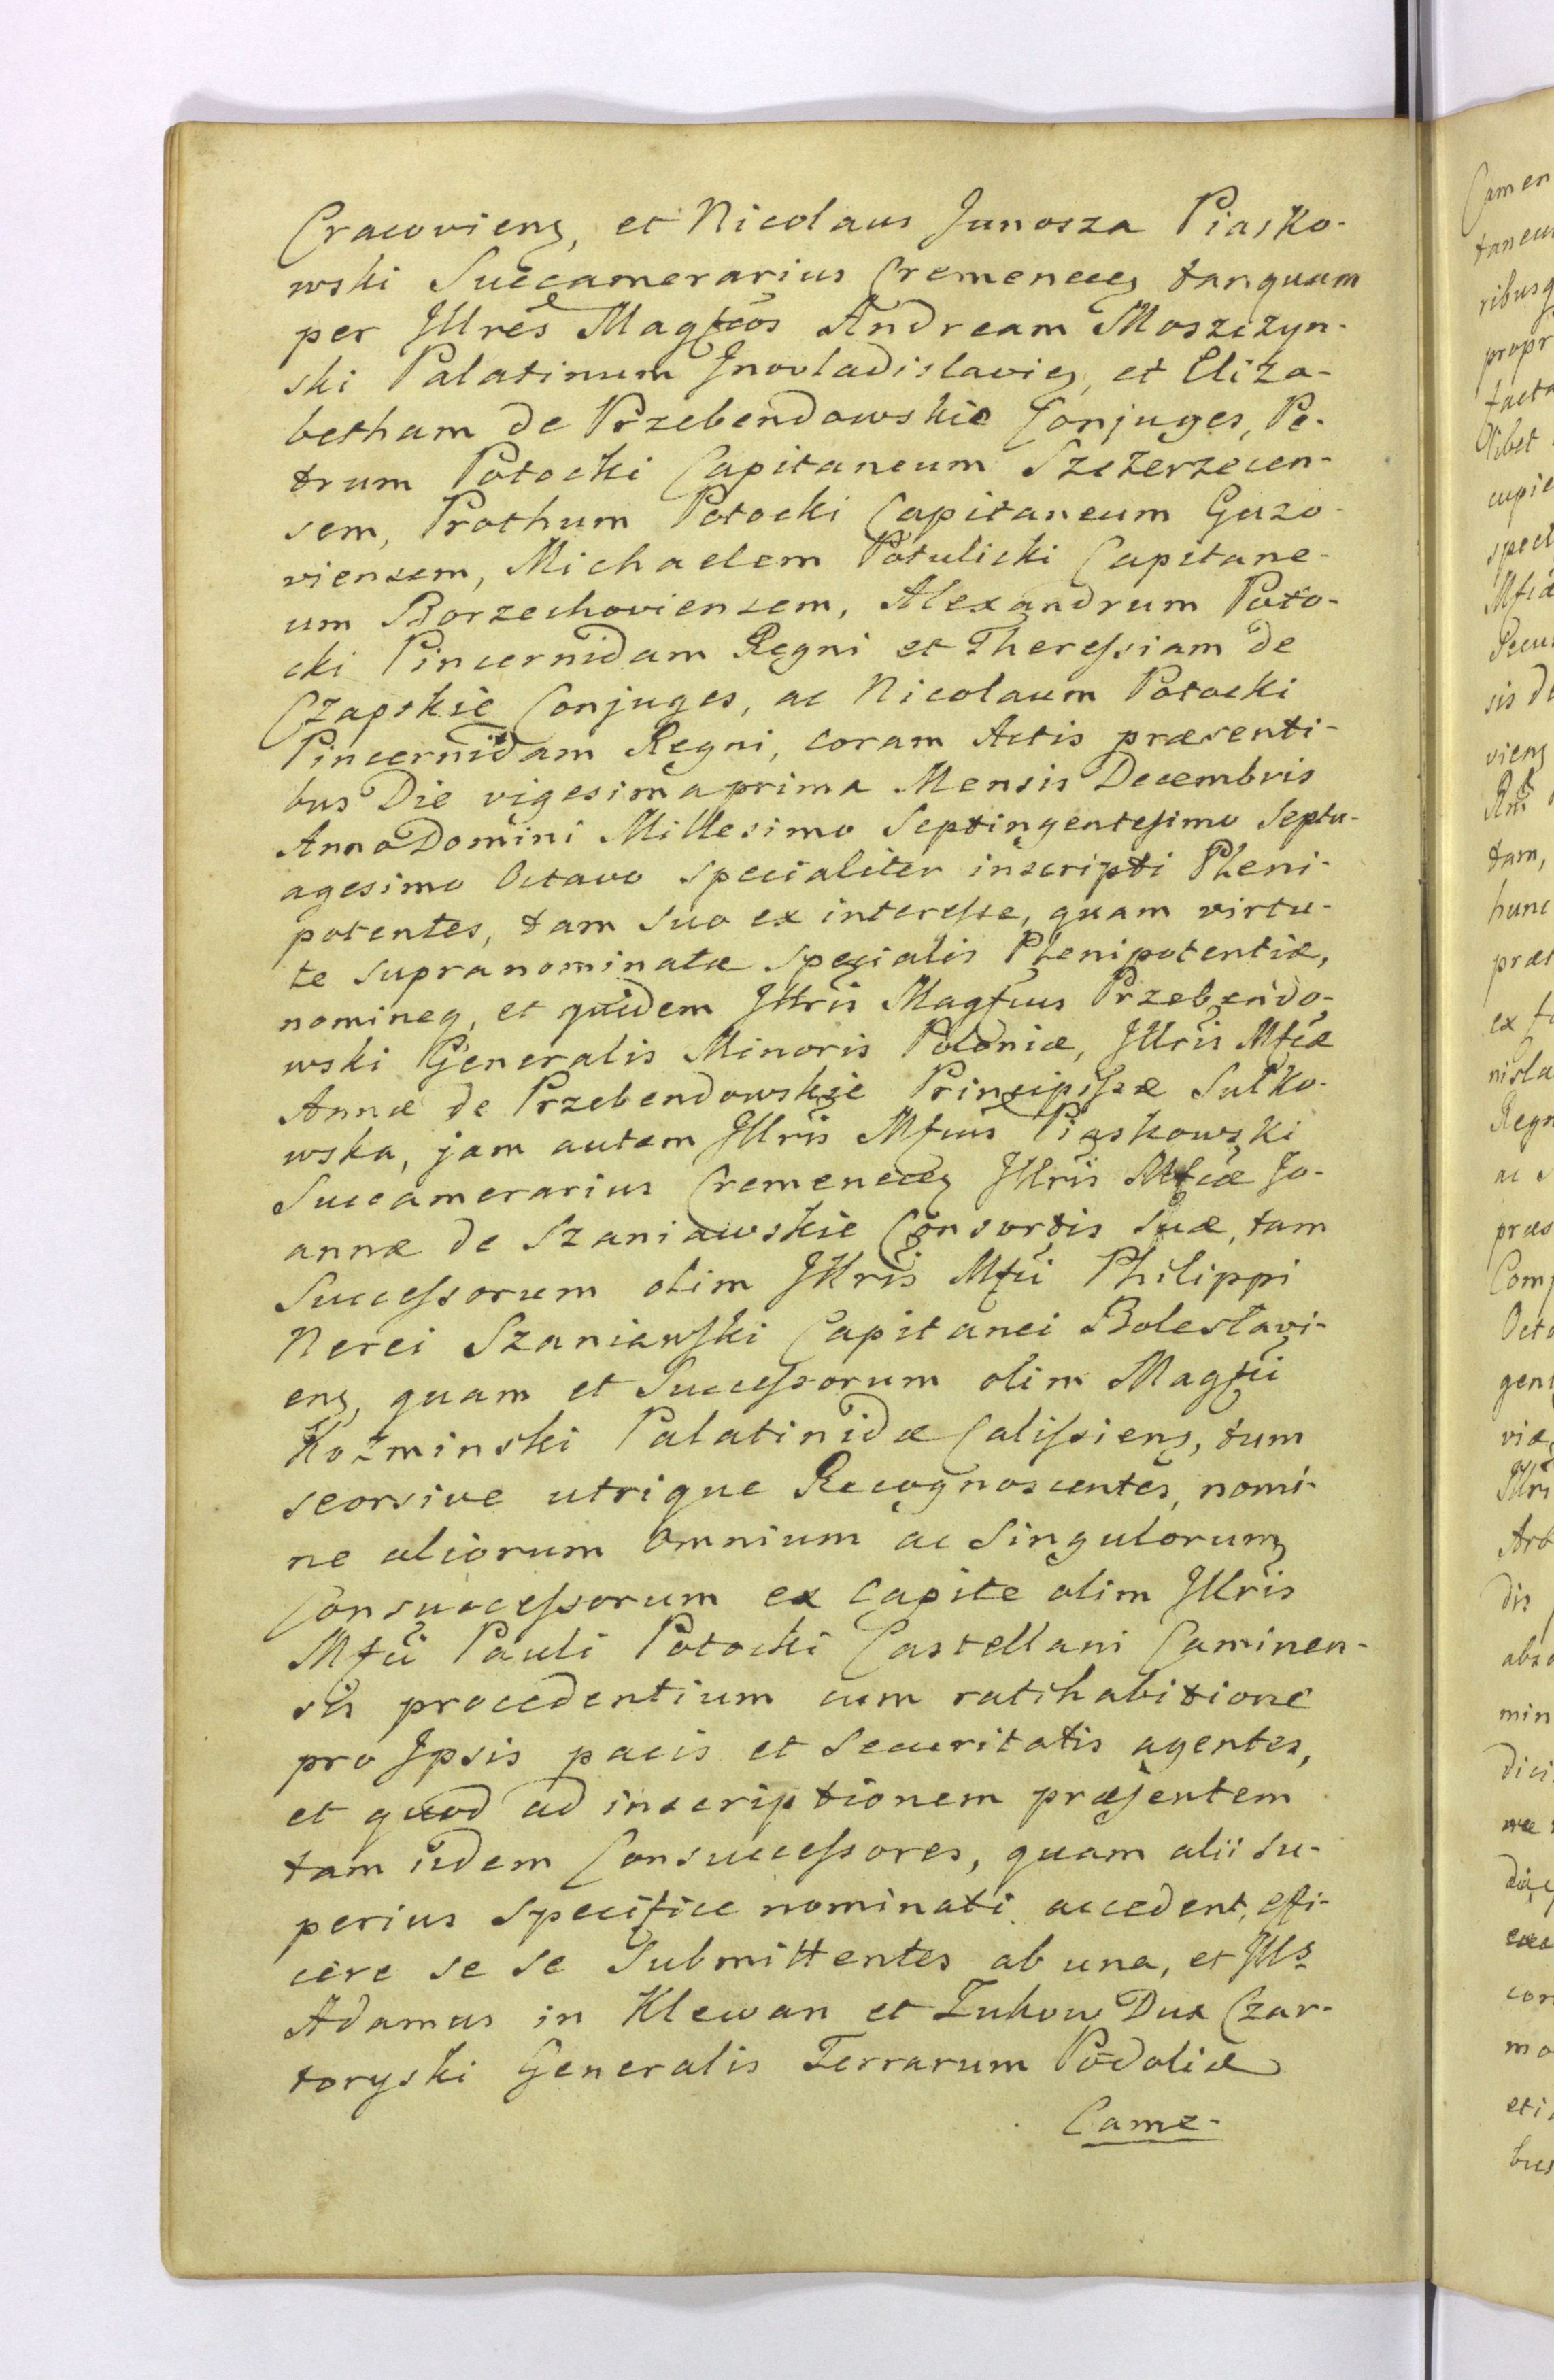 Cracoviens, et Nicolaus Junosza Piasko-
wski Succamerarius Cremeneces tanquam
per Illres Magfcos Andream Moszczyn-
ski Palatinum Jnovladislavies, et Eliza-
betham de Przebendowskie Conjuges, Pe-
trum Potocki Capitaneum Szczerzecen-
sem, Prothum Potocki Capitaneum Guzo-
viensem, Michaelem Potulicki Capitane-
um Borzechoviensem, Alexandrum Poto-
cki Pincernidam Regni et Theressiam de
Czapskie Conjuges, ac Nicolaum Potocki
Pincernidam Regni, coram Actis præsenti-
bus Die vigesima prima Mensis Decembris
Anno Domini Millesimo Septingentesimo Septu-
agesimo Octavo specialiter inscripti Pleni-
potentes, tam suo ex interesse, quam virtu-
te supranominatæ specialis Plenipotentiæ,
nomineq, et quidem Illris Magfcus Przebendo-
wski Generalis Minoris Poloniæ, Illris Mfcæ
Annæ de Przebendowskie Principissæ Sułko-
wska, jam autem Illris Mfcus Piaskowski
Succamerarius Cremeneces Illris Mfcæ Jo-
annæ de Szaniawskie Consortis suæ, tam
Successorum olim Illris Mfci Philippi
Nerei Szaniawski Capitanei Boleslavi-
ens, quam et Successorum olim Magfci
Kozminski Palatinidæ Calissiens, tum
seorsive utrique Recognoscentes, nomi-
ne aliorum omnium ac singulorum
Consuccessorum ex capite olim Illris
Mfci Pauli Potocki Castellani Caminen-
sis procedentium cum ratihabitione
pro Ipsis pacis et securitatis agentes,
et quod ad inscriptionem præsentem
tam iidem Consuccessores, quam alii su-
perius specifice nominati accedent, effi-
cere se se submittentes ab una, et Ills
Adamus in Klewan et Zukow Dux Czar-
toryski Generalis Terrarum Podoliæ
Came-